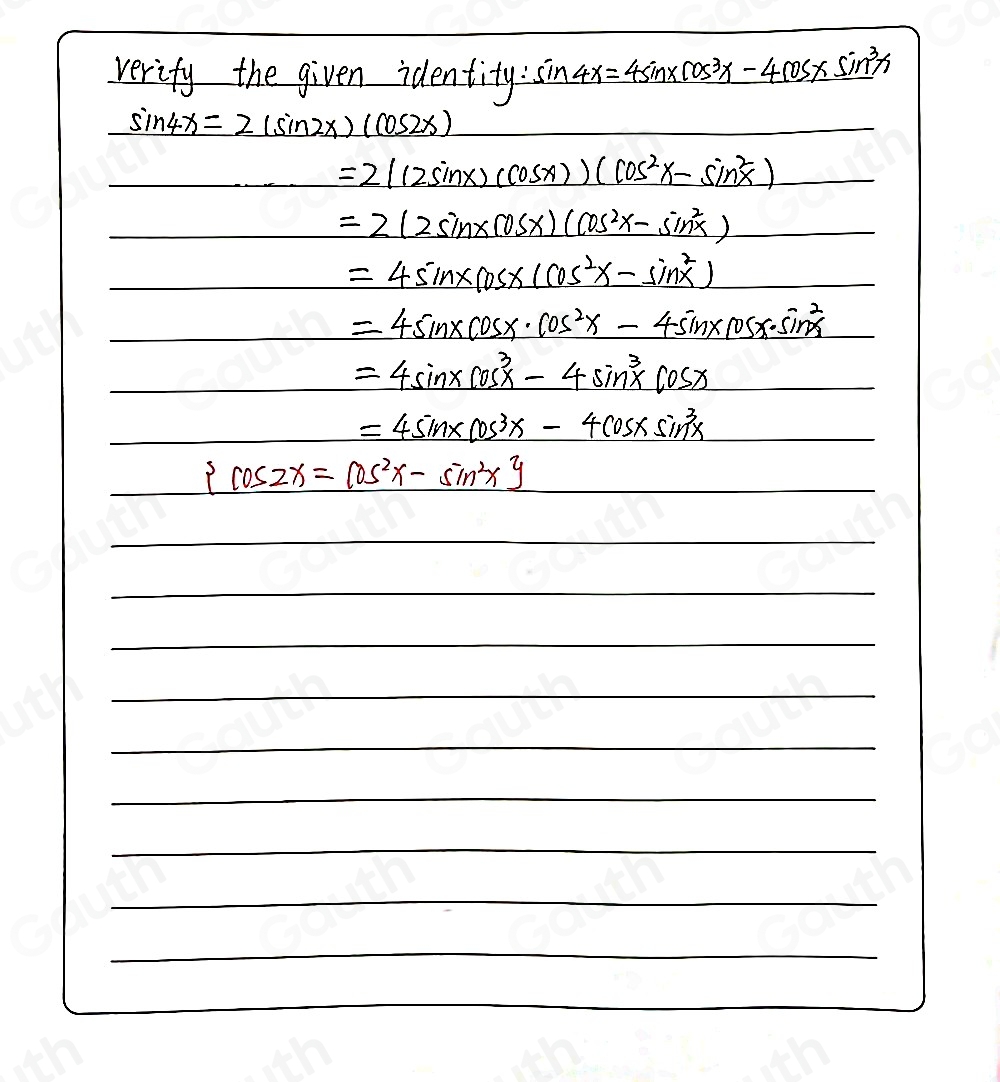 verify the given identity: sin4x = 4sinxcos³x - 4cosx sin³x
sin4x = 2(sin2x)(cos2x)
= 2((2sinx)(cosx))(cos²x - sin²x)
= 2(2sinxcosx)(cos²x - sin²x)
= 4sinxcosx(cos²x - sin²x)
= 4sinxcosx·cos²x - 4sinxcosx·sin²x
= 4sinxcos³x - 4sin³x cosx
= 4sinxcos³x - 4cosxsin³x
{cos2x = cos²x - sin²x}
Gauth